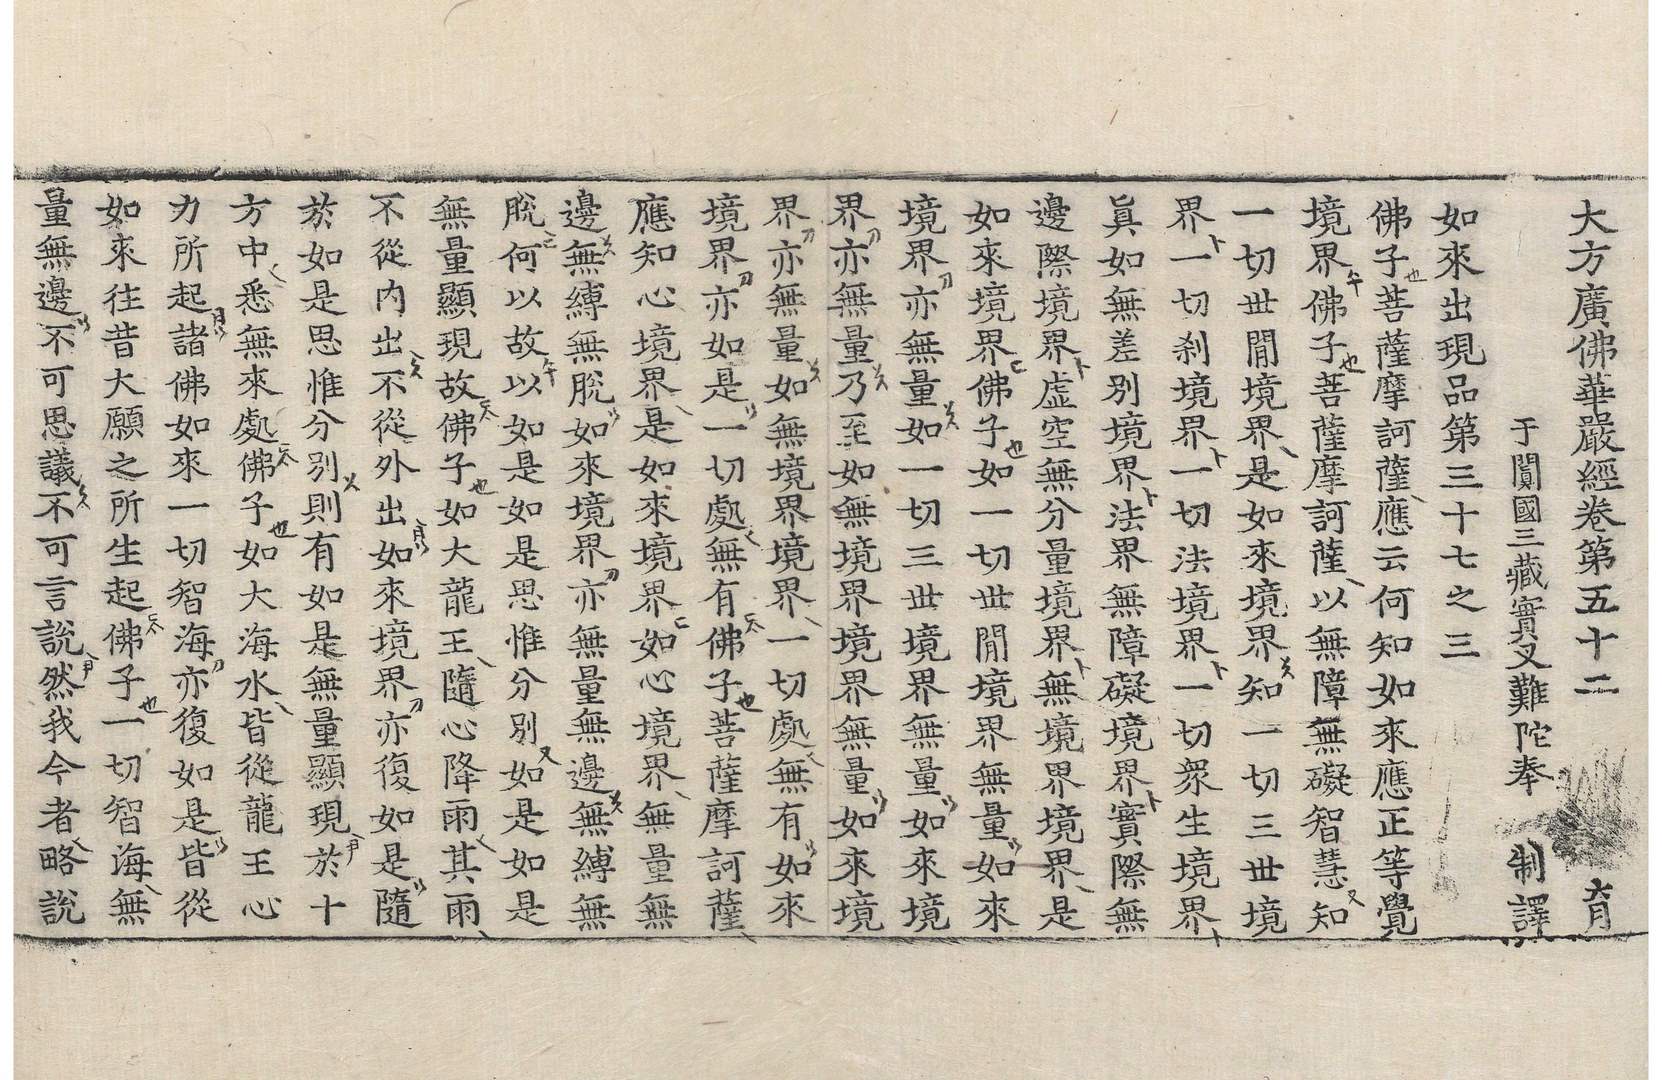 大方廣佛華嚴經卷第五十二　育
于闐國三藏實叉難陀奉　制譯
如來出現品第三十七之三
佛子菩薩摩訶薩應云何知如來應正等覺
境界佛子菩薩摩訶薩以無障無礙智慧知
一切世閒境界是如來境界知一切三世境
界一切刹境界一切法境界一切衆生境界
眞如無差別境界法界無障礙境界實際無
邊際境界虛空無分量境界無境界境界是
如來境界佛子如一切世閒境界無量如來
境界亦無量如一切三世境界無量如來境
界亦無量乃至如無境界境界無量如來境
界亦無量如無境界境界一切處無有如來
境界亦如是一切處無有佛子菩薩摩訶薩
應知心境界是如來境界如心境界無量無
邊無縛無脫如來境界亦無量無邊無縛無
脫何以故以如是如是思惟分別如是如是
無量顯現故佛子如大龍王隨心降雨其雨
不從內出不從外出如來境界亦復如是隨
於如是思惟分別則有如是無量顯現於十
方中悉無來處佛子如大海水皆從龍王心
力所起諸佛如來一切智海亦復如是皆從
如來往昔大願之所生起佛子一切智海無
量無邊不可思議不可言說然我今者略說